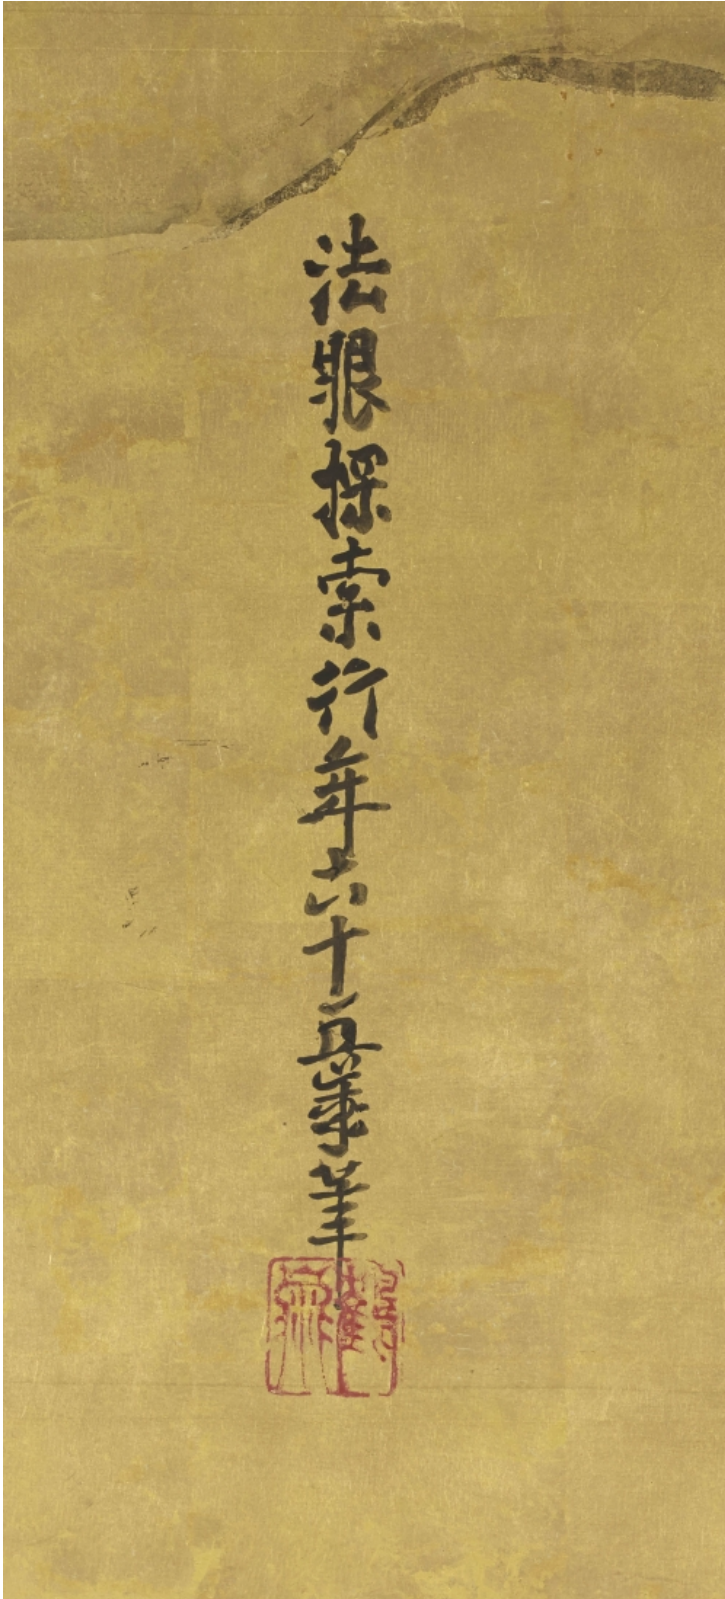 法眼探索行年六十五歳筆